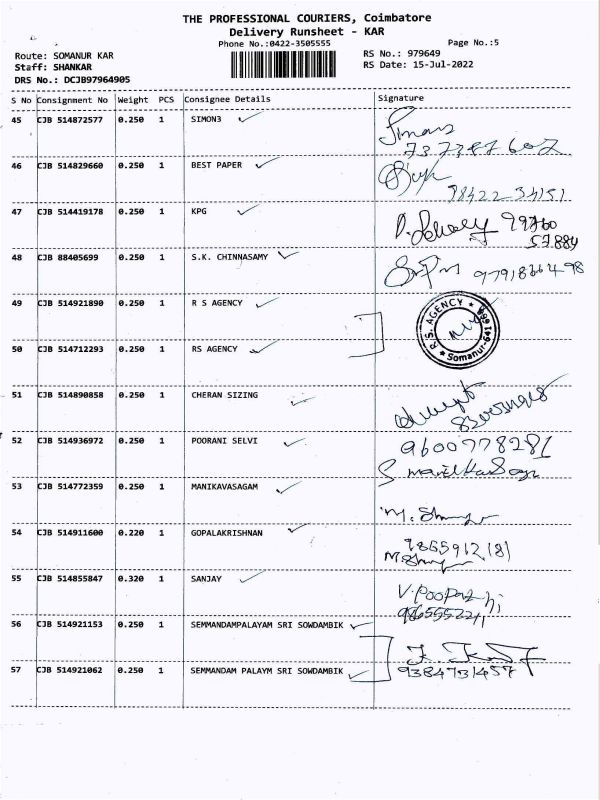 THE PROFESSIONAL COURIERS, Coimbatore
Delivery Runsheet - KAR
Phone No.:0422-3505555
Page No.:5
Route: SOMANUR KAR
RS No.: 979649
Staff: SHANKAR
RS Date: 15-Jul-2022
DRS No.: DCJB97964905
S No Consignment No Weight PCS Consignee Details Signature
45 CJB 514872577 0.250 1 SIMON3
46 CJB 514829660 0.250 1 BEST PAPER
98422 34151
47 CJB 514419178 0.250 1 KPG
99760
57884
48 CJB 88405699 0.250 1 S.K. CHINNASAMY
49 CJB 514921890 0.250 1 R S AGENCY
R.S. AGENCY ★ Somanur-641
50 CJB 514712293 0.250 1 RS AGENCY
51 CJB 514890858 0.250 1 CHERAN SIZING
52 CJB 514936972 0.250 1 POORANI SELVI
9600778281
53 CJB 514772359 0.250 1 MANIKAVASAGAM
54 CJB 514911600 0.220 1 GOPALAKRISHNAN
9865912181
55 CJB 514855847 0.320 1 SANJAY
56 CJB 514921153 0.250 1 SEMMANDAMPALAYAM SRI SOWDAMBIK
57 CJB 514921062 0.250 1 SEMMANDAM PALAYM SRI SOWDAMBIK
9384731457